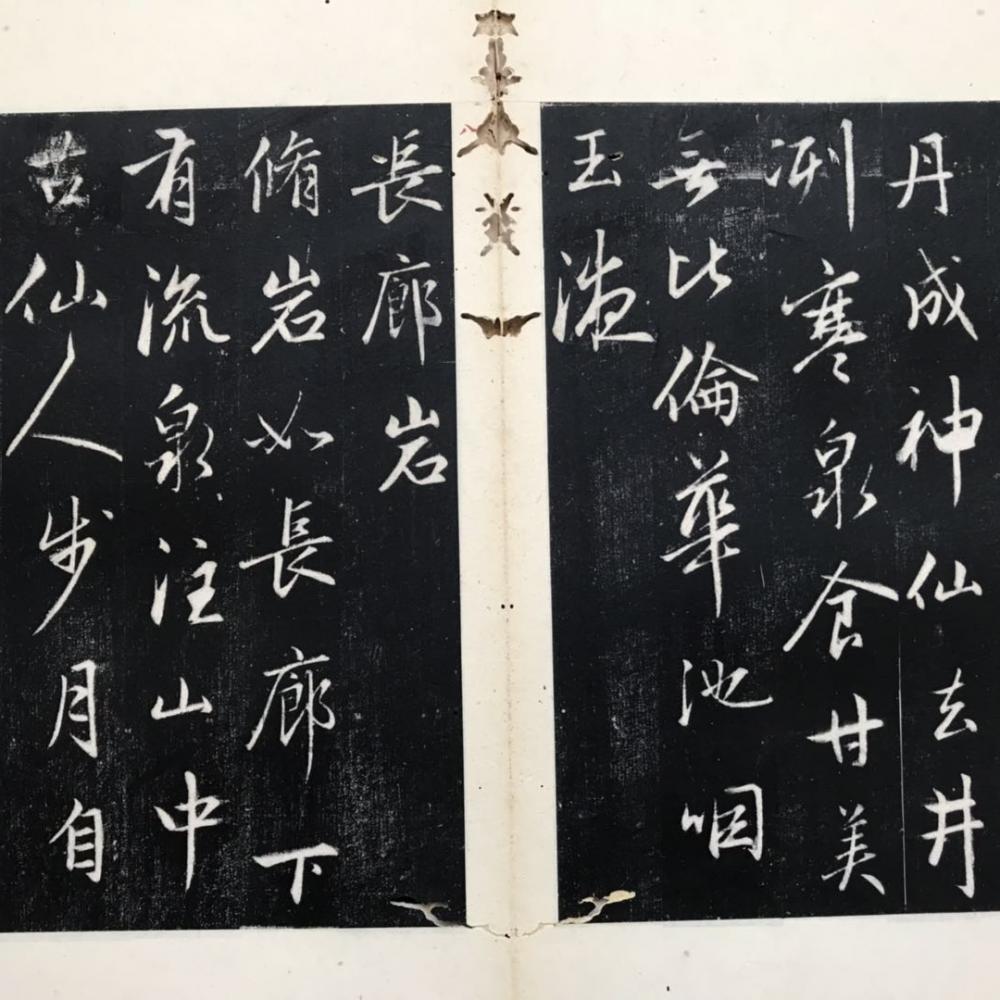 丹成神仙去井
洌寒泉食甘美
無比倫華池咽
玉液
長廊岩
脩岩如長廊下
有流泉注山中
古仙人步月自